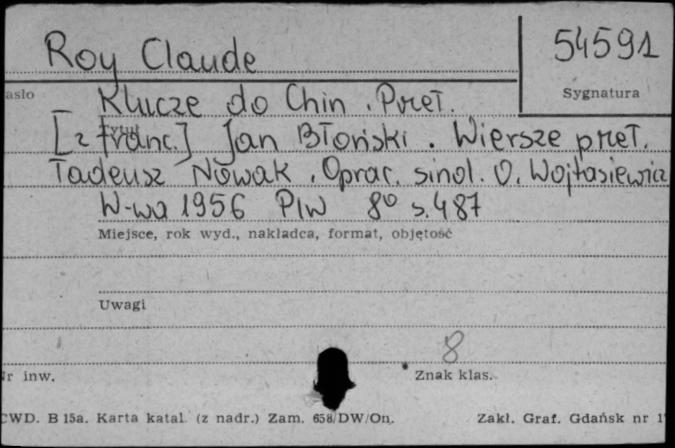 Roy Claude
54591
asło
Sygnatura
Klucze do Chin. Przeł.
[z franc.] Jan Błoński. Wiersze przeł.
Tadeusz Nowak. Oprac. sinol. O. Wojtasiewicz
W-wa 1956 PIW 8° s. 487
Miejsce, rok wyd., nakładca, format, objętość
Uwagi
8
r inw.
Znak klas.
CWD. B 15a. Karta katal. (z nadr.) Zam. 658/DW/On.
Zakł. Graf. Gdańsk nr 1